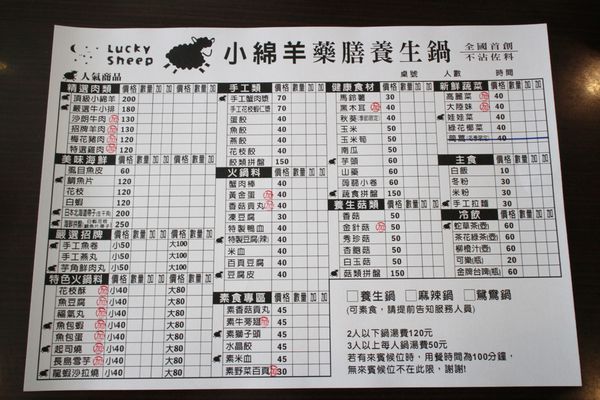 Lucky Sheep
小綿羊藥膳養生鍋
全國首創
不沾佐料
人氣商品
桌號 人數 時間
精選肉類 價格 數量 加 加
頂級小綿羊 200
嚴選牛小排 180
沙朗牛肉 130
招牌羊肉 130
梅花豬肉 130
特選雞肉 130
美味海鮮 價格 數量 加 加
虱目魚皮 60
鯛魚片 120
花枝 120
白蝦 120
200
250
嚴選招牌 價格 數量 價格 數量
手工魚卷 小50 大100
手工燕丸 小50 大100
芋角鮮肉丸 小50 大100
特色火鍋料 價格 數量 價格 數量
花枝酥 小40 大80
魚豆腐 小40 大80
福氣丸 小40 大80
魚包蝦 小40 大80
魚包蛋 小40 大80
起司燒 小40 大80
長島雪芋 小40 大80
龍蝦沙拉燒 小40 大80
手工類 價格 數量 加 加
手工蟹肉漿 70
手工花枝蝦仁漿 70
蛋餃 60
魚餃 60
燕餃 60
花枝餃 60
餃類拼盤 150
火鍋料 價格 數量 加 加
蟹肉棒 40
黃金蛋 40
香菇貢丸 40
凍豆腐 30
特製鴨血 40
特製豆腐(辣) 40
米血 40
百頁豆腐 40
豆腐皮 40
素食專區 價格 數量 加 加
素香菇貢丸 45
素牛蒡翅 45
素獅子頭 45
水晶餃 45
素米血 45
素野菜百頁 30
健康食材 價格 數量 加 加
馬鈴薯 30
黑木耳 40
秋葵(季節限定) 40
玉米 50
玉米筍 50
南瓜 50
芋頭 60
山藥 60
蒟蒻小卷 60
蔬食拼盤 150
養生菇類 價格 數量 加 加
香菇 50
金針菇 50
秀珍菇 50
杏鮑菇 50
白玉菇 50
菇類拼盤 150
新鮮蔬菜 價格 數量 加 加
高麗菜 40
大陸妹 40
娃娃菜 40
綠花椰菜 40
茼蒿 40
主食 價格 數量 加 加
白飯 10
冬粉 30
米粉 30
手工拉麵 30
冷飲 價格 數量 加 加
蛇草茶(壺) 60
茶花綠茶(壺) 60
柳橙汁(壺) 60
可樂(瓶) 20
金牌台啤(瓶) 60
□養生鍋 □麻辣鍋 □鴛鴦鍋
(可素食,請提前告知服務人員)
2人以下鍋湯費120元
3人以上每人鍋湯費50元
若有來賓候位時,用餐時間為100分鐘,
無來賓候位不在此限,謝謝!